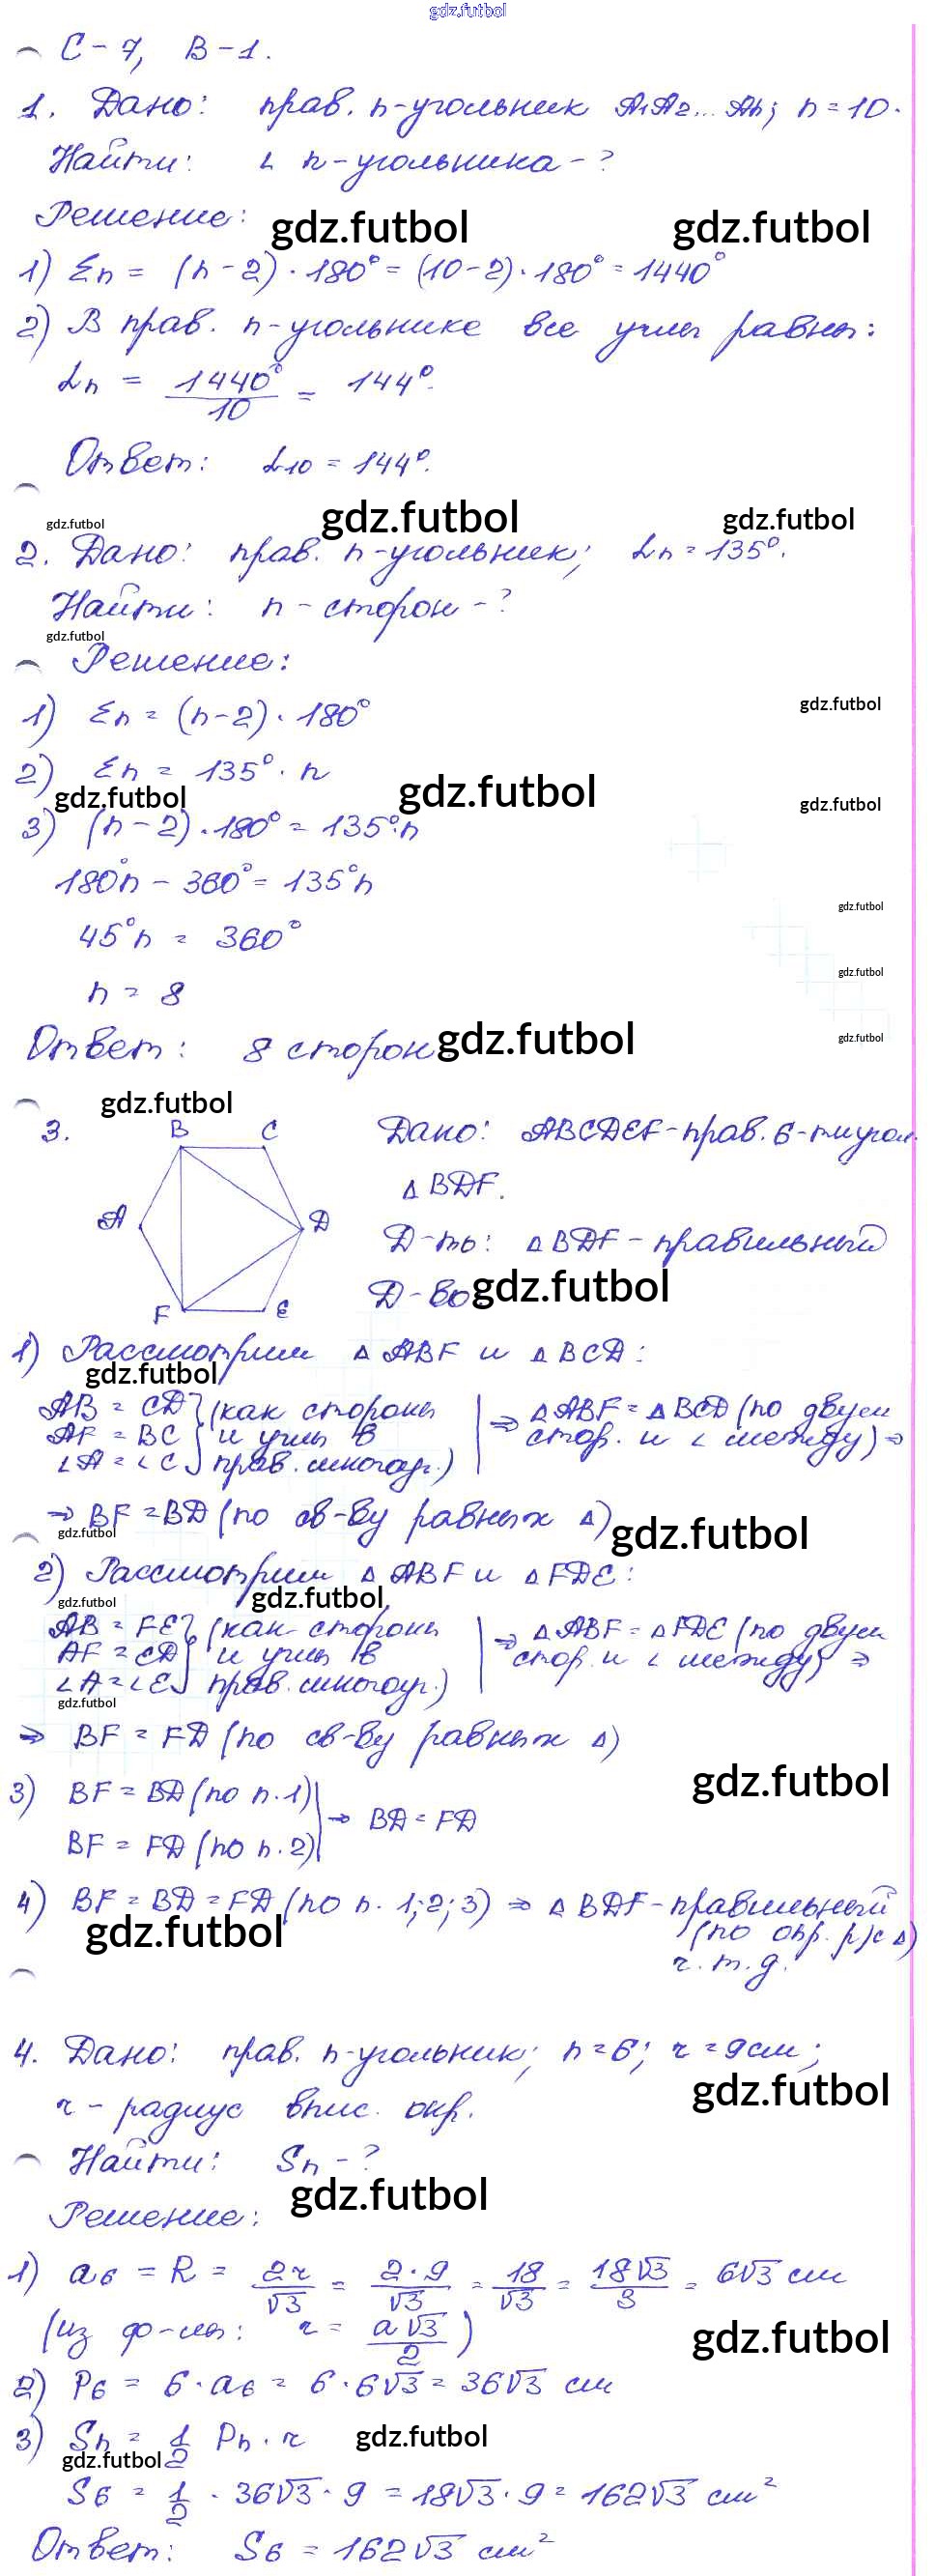 gdz.futbol
С-7, В-1.
1. Дано: прав. n-угольник A₁A₂...An; n=10.
Найти: ∠ n-угольника-?
Решение:
gdz.futbol gdz.futbol
1) Σn = (n-2)·180° = (10-2)·180° = 1440°
2) В прав. n-угольнике все углы равны:
∠n = 1440°/10 = 144°.
Ответ: ∠10 = 144°.
gdz.futbol gdz.futbol gdz.futbol
2. Дано: прав. n-угольник; ∠n = 135°.
Найти: n-сторон-?
gdz.futbol
Решение:
1) Σn = (n-2)·180°
gdz.futbol
2) Σn = 135°·n
gdz.futbol gdz.futbol gdz.futbol
3) (n-2)·180° = 135°·n
180°n - 360° = 135°n
gdz.futbol
45°n = 360°
gdz.futbol
n = 8
gdz.futbol
Ответ: 8 сторон
gdz.futbol
gdz.futbol
3.
B C
A D
F E
Дано: ABCDEF-прав. 6-тиугол.
△BDF.
Д-ть: △BDF-правильный
Д-во
gdz.futbol
1) Рассмотрим △ABF и △BCD:
gdz.futbol
AB = CD } (как стороны | ⇒ △ABF = △BCD (по двум
AF = BC } и углы в | стор. и ∠ между) ⇒
∠A = ∠C } прав. многоуг.)
⇒ BF = BD (по св-ву равных △)
gdz.futbol gdz.futbol
2) Рассмотрим △ABF и △FDE:
gdz.futbol gdz.futbol
AB = FE } (как стороны | ⇒ △ABF = △FDE (по двум
AF = CD } и углы в | стор. и ∠ между) ⇒
∠A = ∠E } прав. многоуг.)
gdz.futbol
⇒ BF = FD (по св-ву равных △)
gdz.futbol
3) BF = BD (по п.1) | ⇒ BD = FD
BF = FD (по п.2) |
4) BF = BD = FD (по п. 1;2;3) ⇒ △BDF-правильный
gdz.futbol
(по опр. р/с △)
ч.т.д.
4. Дано: прав. n-угольник; n=6; r=9см;
gdz.futbol
r - радиус впис. окр.
Найти: Sn-?
gdz.futbol
Решение:
1) a₆ = R = 2r/√3 = 2·9/√3 = 18/√3 = 18√3/3 = 6√3 см
(из ф-лы: r = a√3/2)
gdz.futbol
2) P₆ = 6·a₆ = 6·6√3 = 36√3 см
3) Sn = 1/2 Pn·r
gdz.futbol
gdz.futbol
S₆ = 1/2 · 36√3 · 9 = 18√3·9 = 162√3 см²
Ответ: S₆ = 162√3 см²